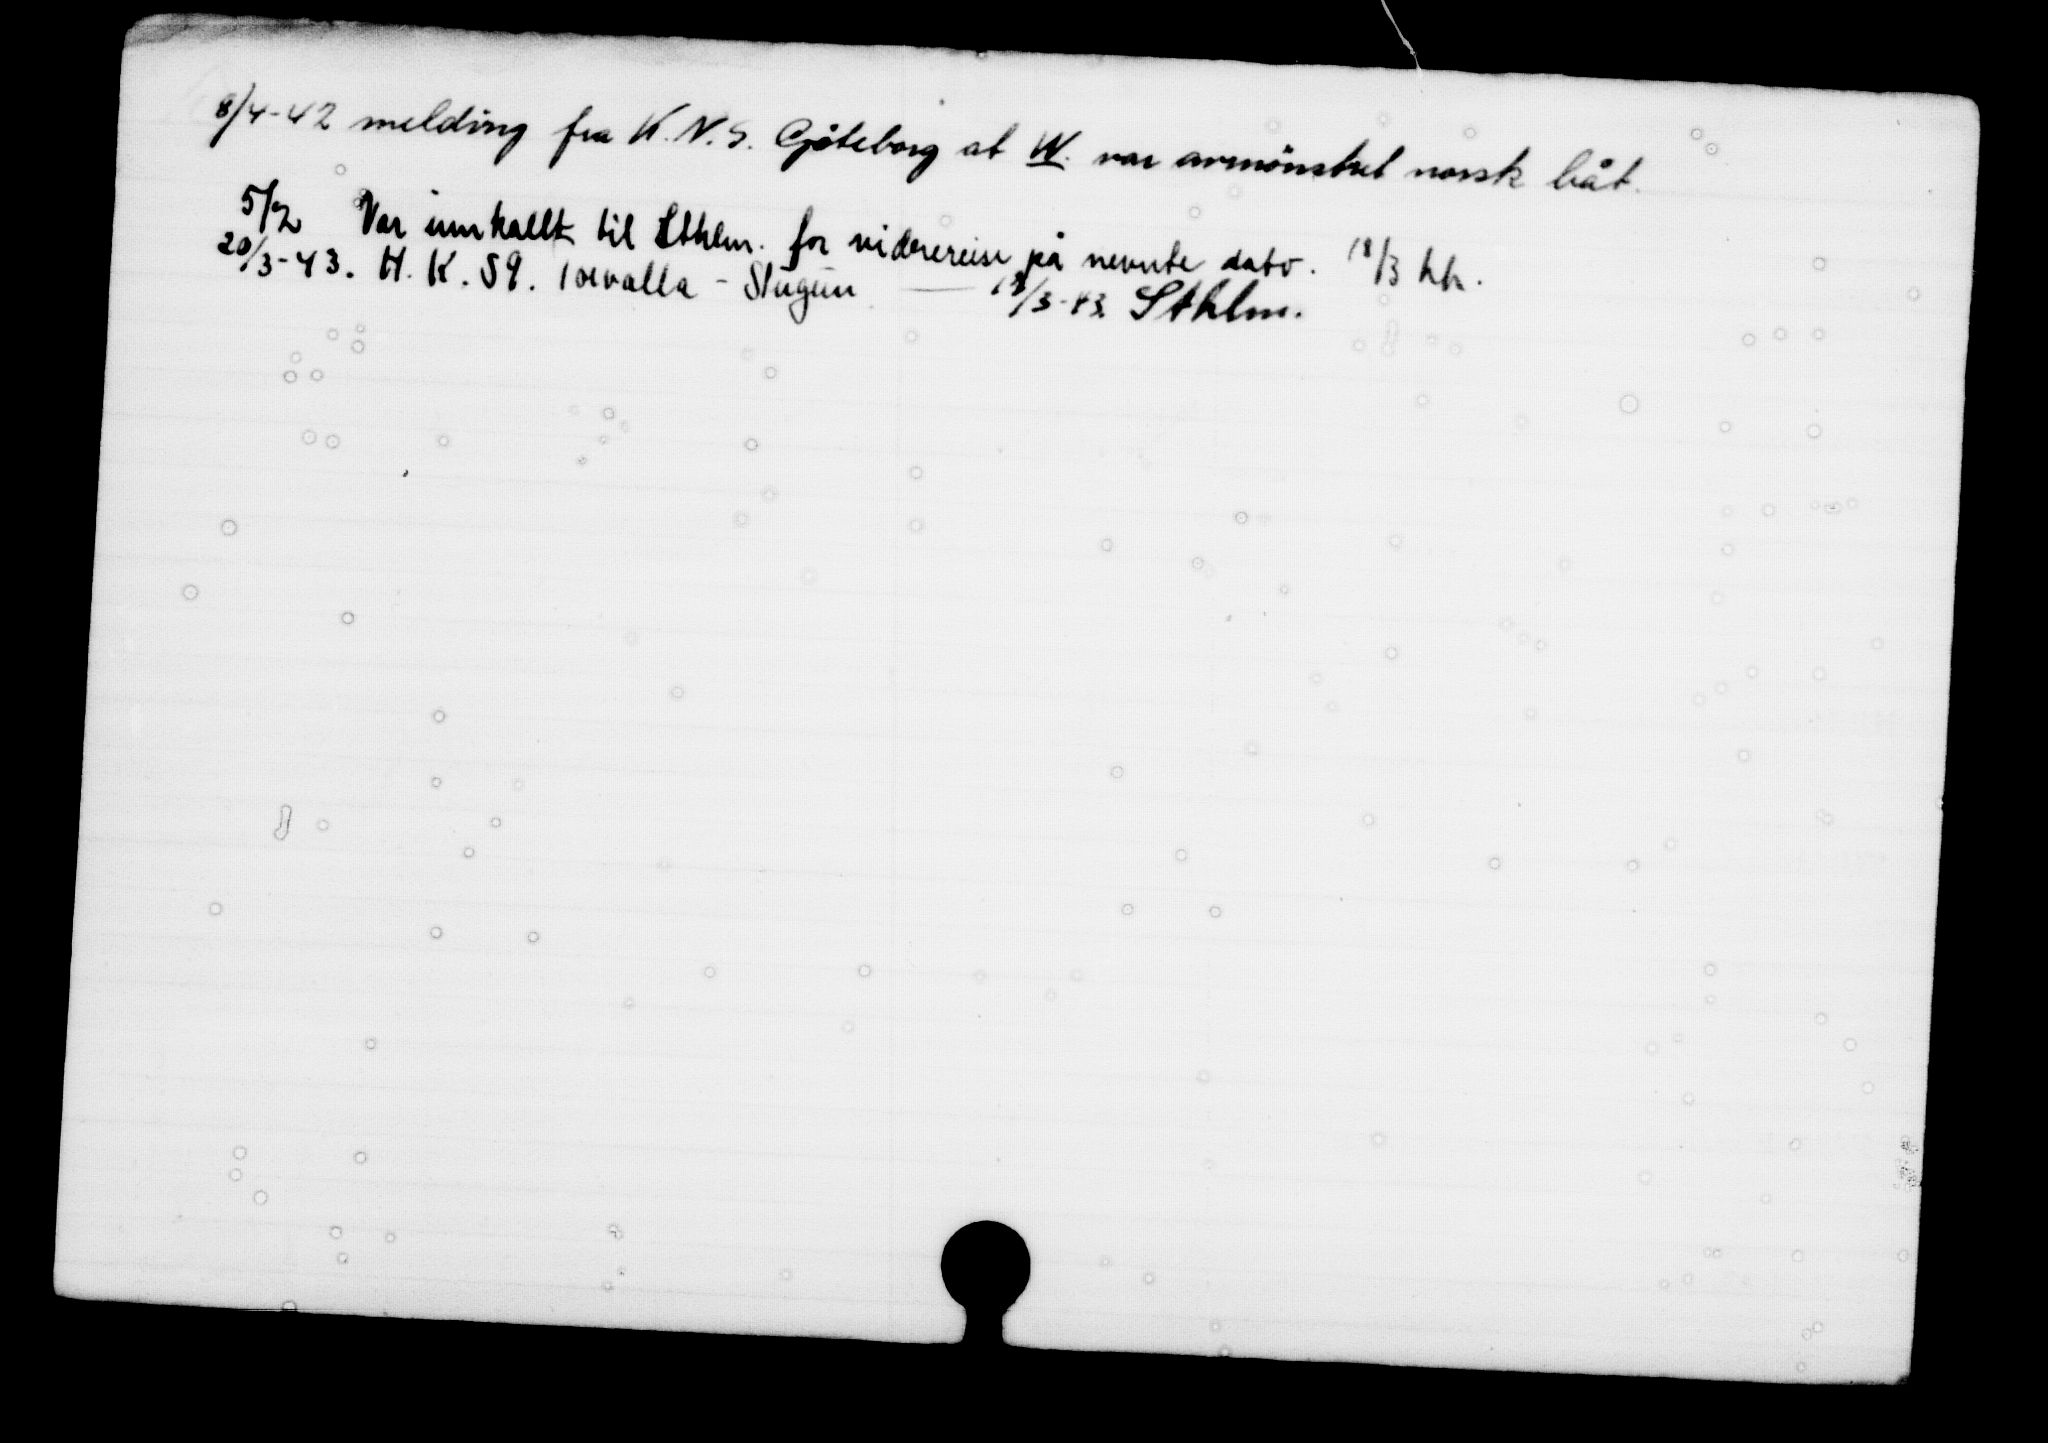 8/4-42 melding fra K.N.S. Gøteborg at W. var avmönstret norsk båt.
5/2 Var innkallt til Sthlm. for viderereise på nevnte dato. 18/3 hh.
20/3-43. H.K. S9. Torvalla - Stugun — 18/3-43. Sthlm.